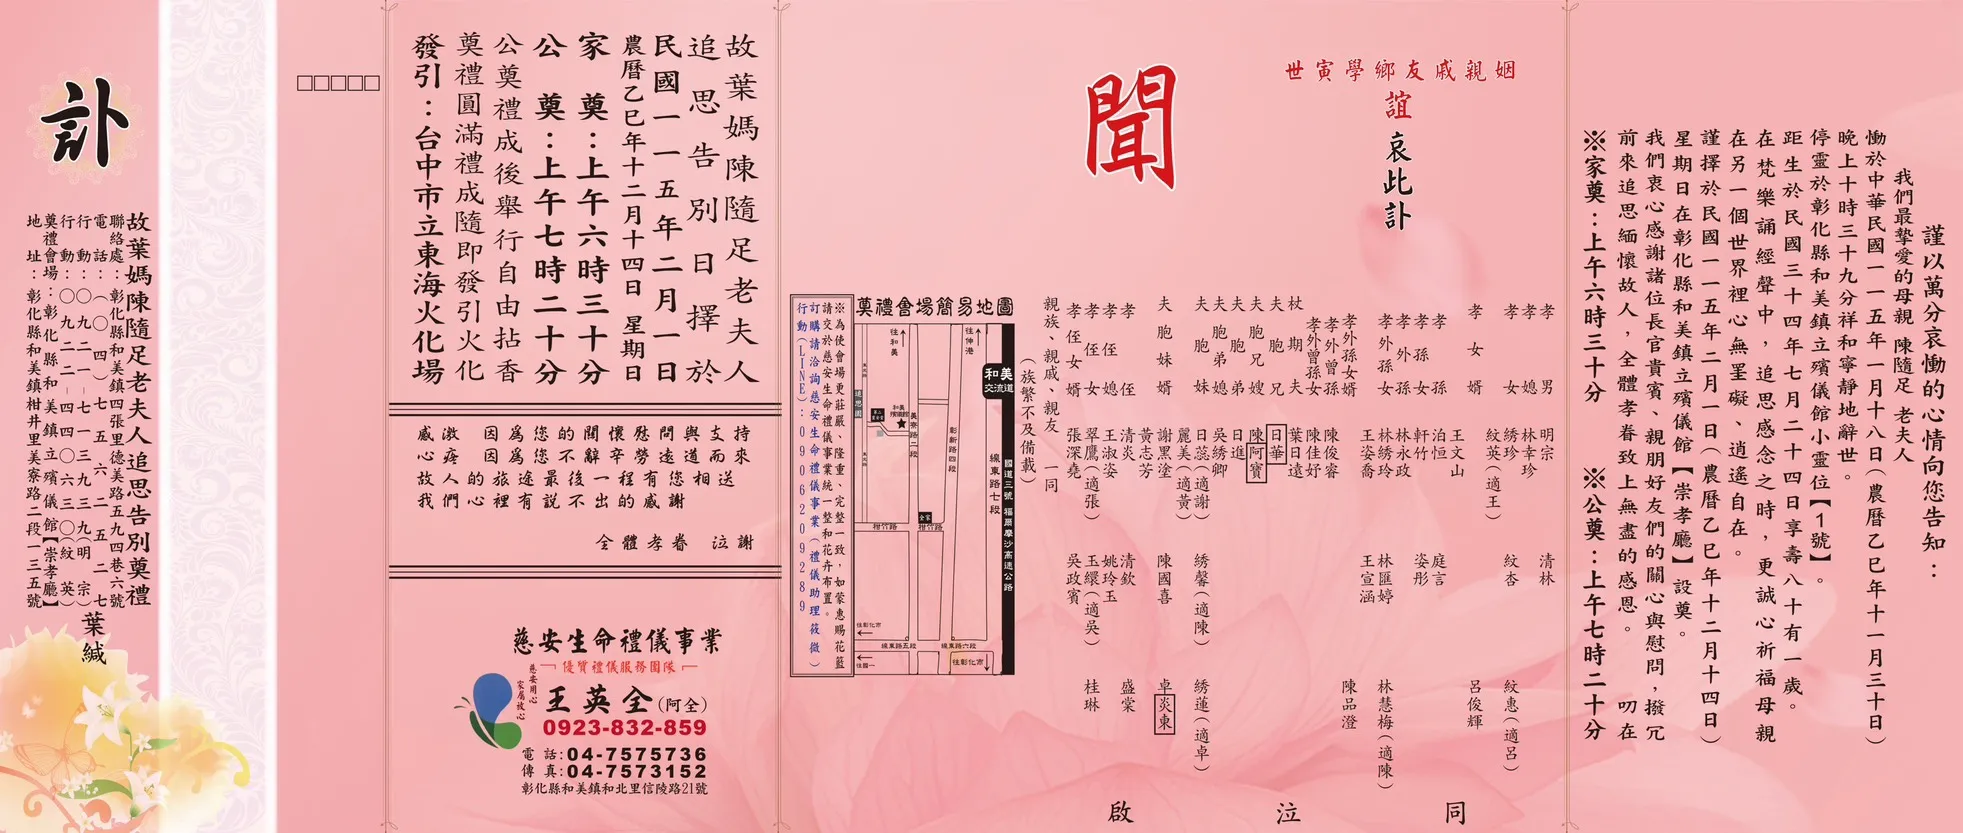 謹以萬分哀慟的心情向您告知：
我們最摯愛的母親 陳隨足 老夫人
慟於中華民國一一五年一月十八日（農曆乙巳年十一月三十日）
晚上十時三十九分祥和寧靜地辭世。
停靈於彰化縣和美鎮立殯儀館小靈位【1號】。
距生於民國三十四年七月二十四日享壽八十有一歲。
在梵樂誦經聲中，追思感念之時，更誠心祈福母親
在另一個世界裡心無罣礙、逍遙自在。
謹擇於民國一一五年二月一日（農曆乙巳年十二月十四日）
星期日在彰化縣和美鎮立殯儀館【崇孝廳】設奠。
我們衷心感謝諸位長官貴賓、親朋好友們的關心與慰問，撥冗
前來追思緬懷故人，全體孝眷致上無盡的感恩。 叨在
※家奠：上午六時三十分 ※公奠：上午七時二十分
姻親戚友鄉學寅世
誼
哀此訃
聞
孝男 明宗 清林
孝媳 林幸珍
孝女 綉珍 紋杏 紋惠（適呂）
紋英（適王）
孝女婿 王文山 呂俊輝
孝孫 泊恒 庭言
孝孫女 軒竹 姿彤
孝外孫 林永政
孝外孫女 林綉玲 林匯婷 林慧梅（適陳）
王姿喬 王宣涵
孝外孫女婿 陳品澄
孝外曾孫 陳俊睿
孝外曾孫女 陳佳妤
杖期夫 葉日遠
夫胞兄 日華
夫胞兄嫂 陳阿寶
夫胞弟 日進
夫胞弟媳 吳綉卿
夫胞妹 日蕊（適謝） 綉馨（適陳） 綉蓮（適卓）
麗美（適黃）
夫胞妹婿 謝黑塗 陳國喜 卓炎東
黃志芳
孝侄 清炎 清欽 盛棠
孝侄媳 王淑姿 姚玲玉
孝侄女 翠鷹（適張） 玉繯（適吳） 桂琳
孝侄女婿 張深堯 吳政賓
親族、親戚、親友 一同
（族繁不及備載）
同泣啟
奠禮會場簡易地圖
往和美
往伸港
和美
交流道
追思園
和美
殯儀館
美寮路二段
彰新路四段
線東路七段
國道三號 福爾摩沙高速公路
全家
柑竹路
柑竹路
往彰化市
線東路五段
線東路六段
往國一
往彰化市
※為使會場更莊嚴、隆重、完整一致，如蒙惠賜花籃
請交於慈安生命禮儀事業統一整和花卉布置。
訂購請洽詢慈安生命禮儀事業（禮儀助理筱微）
行動(LINE)：0906209289
故葉媽陳隨足老夫人
追思告別日擇於
民國一一五年二月一日
農曆乙巳年十二月十四日 星期日
家 奠：上午六時三十分
公 奠：上午七時二十分
公奠禮成後舉行自由拈香
奠禮圓滿禮成隨即發引火化
發引：台中市立東海火化場
感激 因為您的關懷慰問與支持
心疼 因為您不辭辛勞遠道而來
故人的旅途最後一程有您相送
我們心裡有説不出的感謝
全體孝眷 泣謝
慈安生命禮儀事業
優質禮儀服務團隊
慈安用心
家屬放心
王英全(阿全)
0923-832-859
電 話:04-7575736
傳 真:04-7573152
彰化縣和美鎮和北里信陵路21號
訃
故葉媽陳隨足老夫人追思告別奠禮
聯絡處：彰化縣和美鎮四張里德美路五九四巷六號
電 話：（○四）七五六二一五二七
行 動：○九二一-七一三九三九(明 宗)
行 動：○九二二-四四○六三○(紋 英)
奠禮會場：彰化縣和美鎮立殯儀館【崇孝廳】
地 址：彰化縣和美鎮柑井里美寮路二段一三五號
葉緘